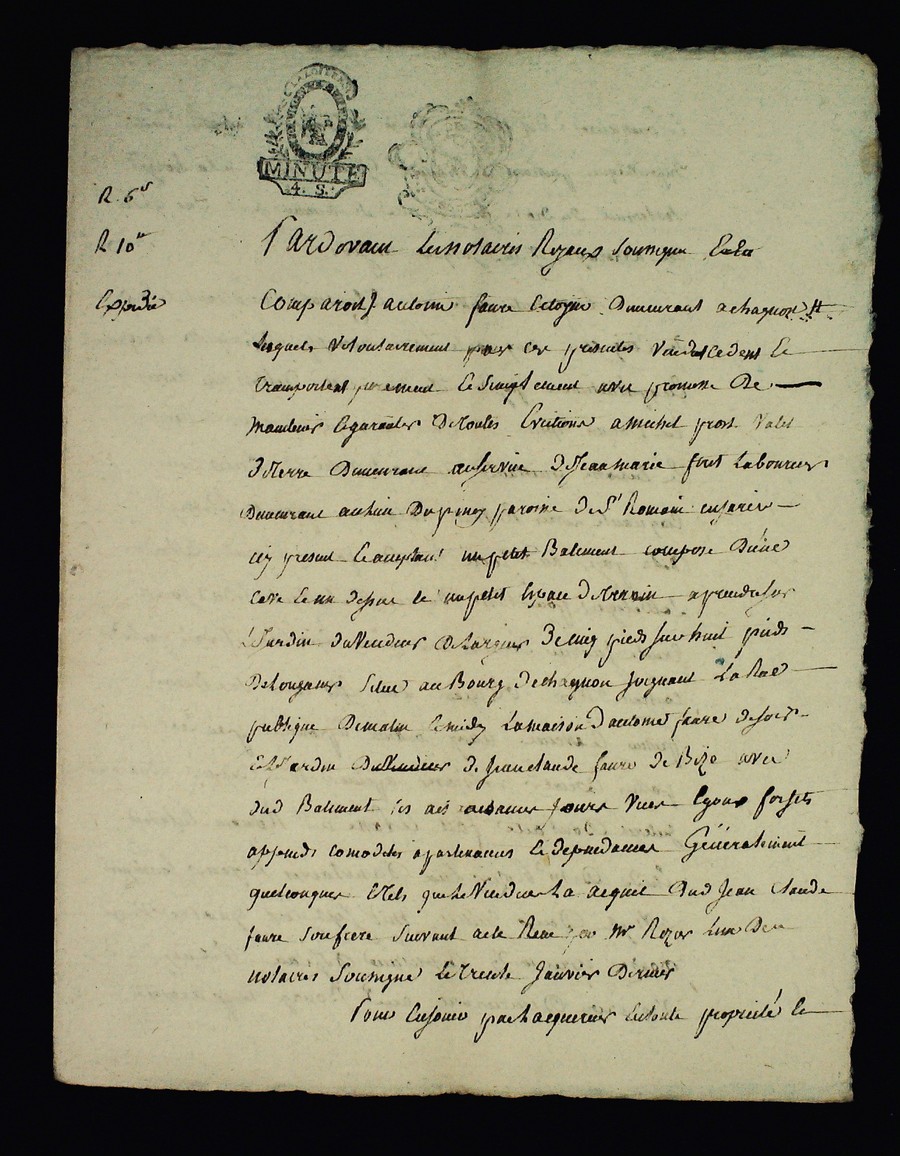 MINUTE
4. S.
R. 6s
R 10s
Expediée
Pardevant Les notaires Royaux Soussigne
Comparoit antoine faure Citoyen Demeurant a chagnon
Lequels Volontairement par ces presentes Vend Cedent Et
transportent purement Et Simplement avec promesse De
Maintenir Et garantir De toutes Evictions a michel prost Valet
De terre Demeurant au Service De Jean marie foret Laboureur
Demeurant au lieu Du piney paroisse de St Romain en jarez
icy present Et acceptant un petit Batiment compose D'une
Cave Et un dessus Et un petit Espace De terrein a prendre sur
Le Jardin du Vendeur De Largeur De cinq pieds sur huit pieds
De Longueur Situé au Bourg De chagnon joignant La Rue
publique De matin Et midy La maison D'antoine faure de soir
Et Jardin De Jean claude faure De Bize avec
Dud Batiment ses Jours Vues Egoux forgets
appends comodites apartenances Et dependances Généralement
quelconques Et tels que Le Vendeur La acquit Dud Jean Claude
faure Son frere Suivant acte Recu par Mr Rozor Lun Des
notaires Soussigne Le trente Janvier Dernier
Pour En jouir par Lacquereur En toute proprieté Et